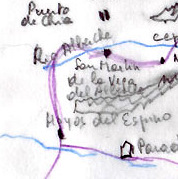 Puerto
de Chia
Rio Alberche
San Martin
de la Vega
del Alberche
Hoyos del Espino
Parad